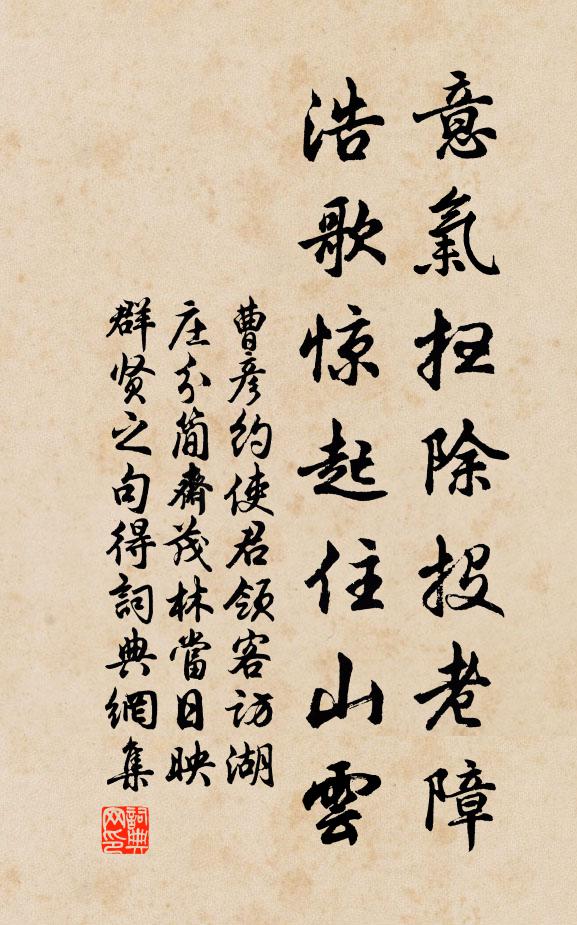 意氣扫除投老障
浩歌惊起住山雲
曹彦約使君領客访湖
庄分简齋茂林當日映
群贤之句得詞典網集
詞典
网印